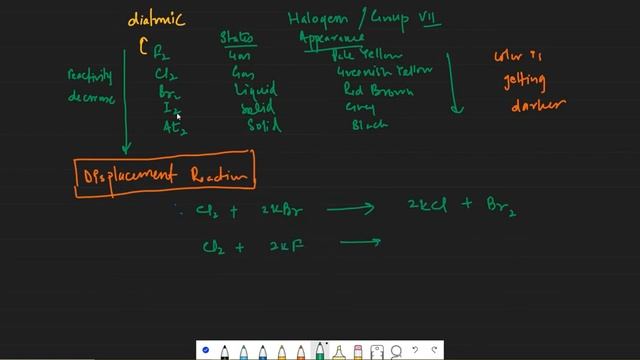 diatomic Halogen / Group VII
States Appearance
F₂ Gas Pale Yellow
Cl₂ Gas Greenish Yellow
Br₂ Liquid Red Brown
I₂ Solid Grey
At₂ Solid Black
reactivity
decrease
color is
getting
darker
Displacement Reaction
: Cl₂ + 2KBr → 2KCl + Br₂
Cl₂ + 2KF →